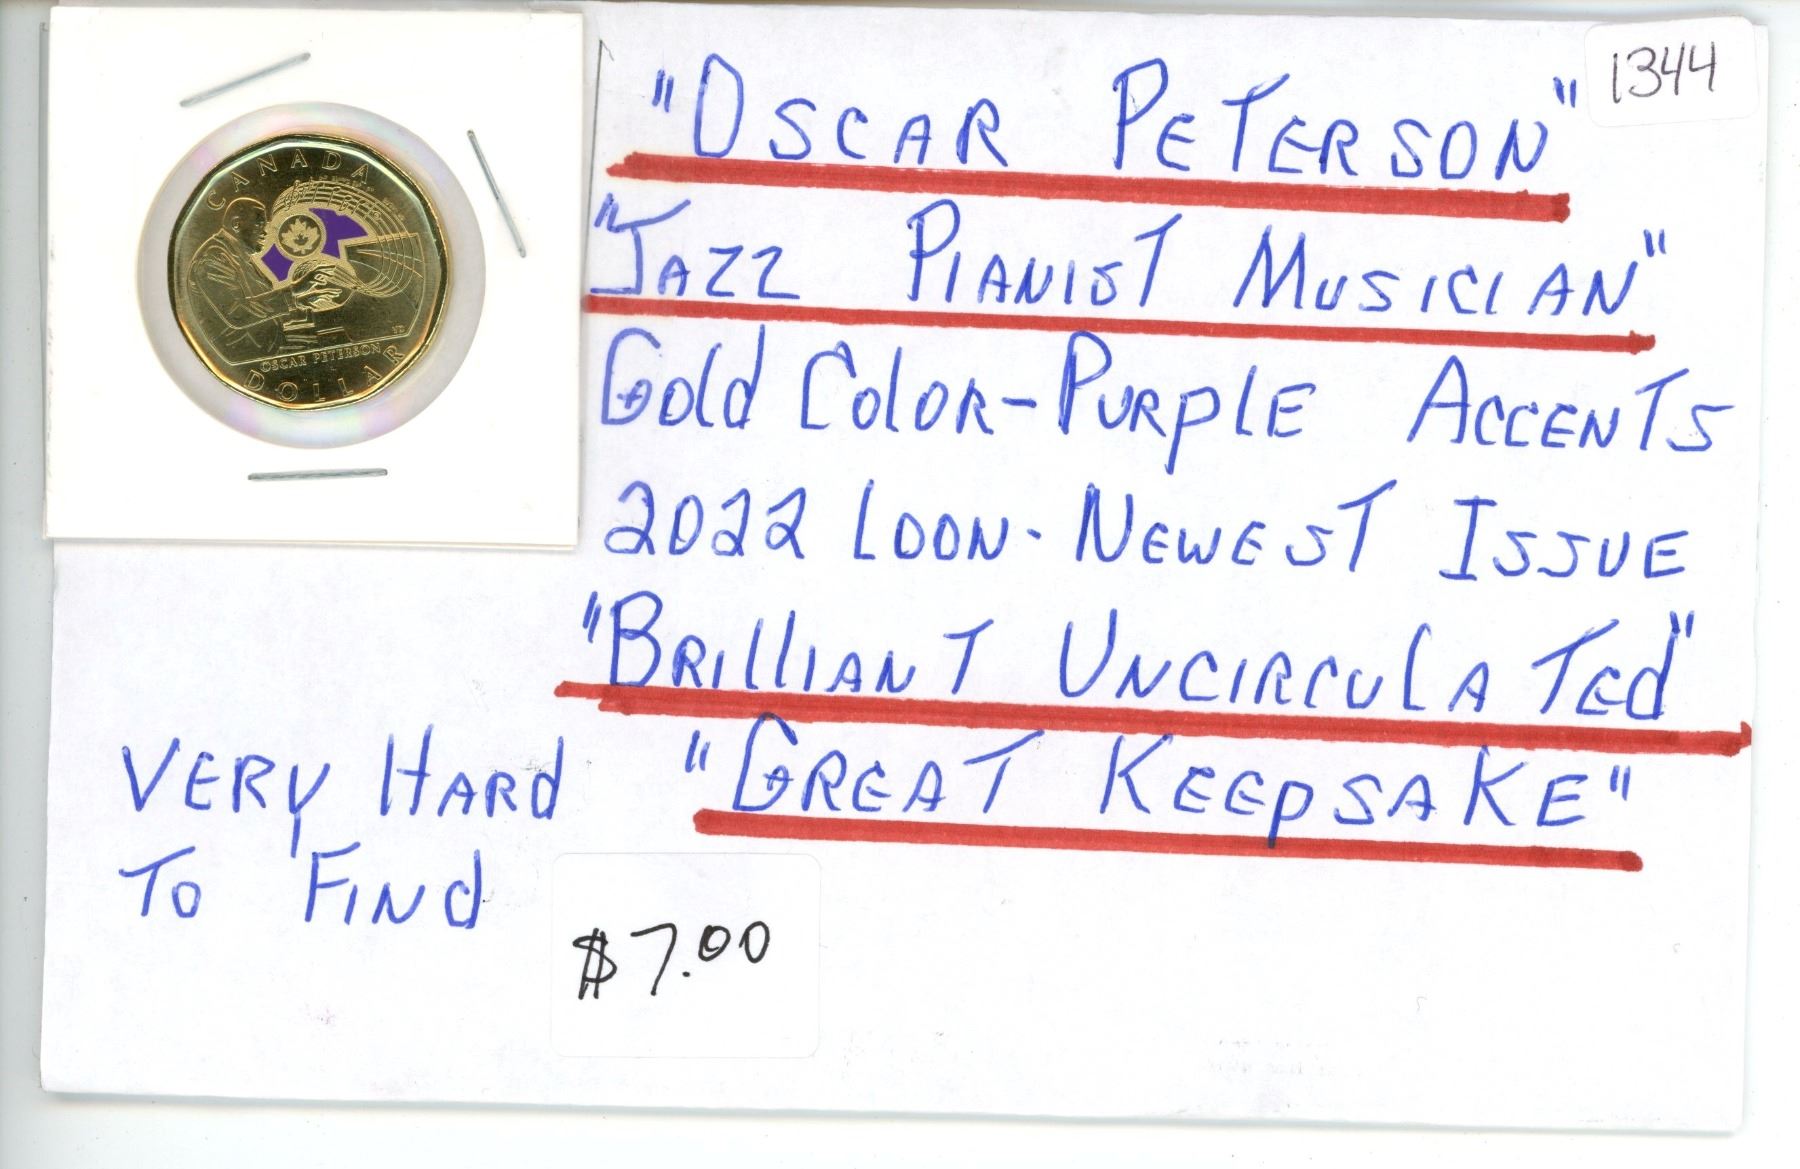 1344
"OSCAR PETERSON"
"JAZZ PIANIST MUSICIAN"
Gold Color-Purple Accents
2022 Loon-Newest Issue
"Brilliant Uncirculated"
"Great Keepsake"
Very Hard
To Find
$7.00
CANADA
OSCAR PETERSON
DOLLAR